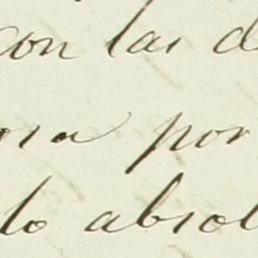 con las d
osa por
lo absol